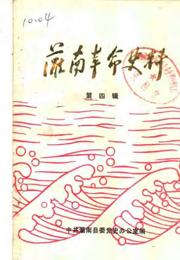 10.04
灌南革命史料
第四辑
中共灌南县委党史办公室编